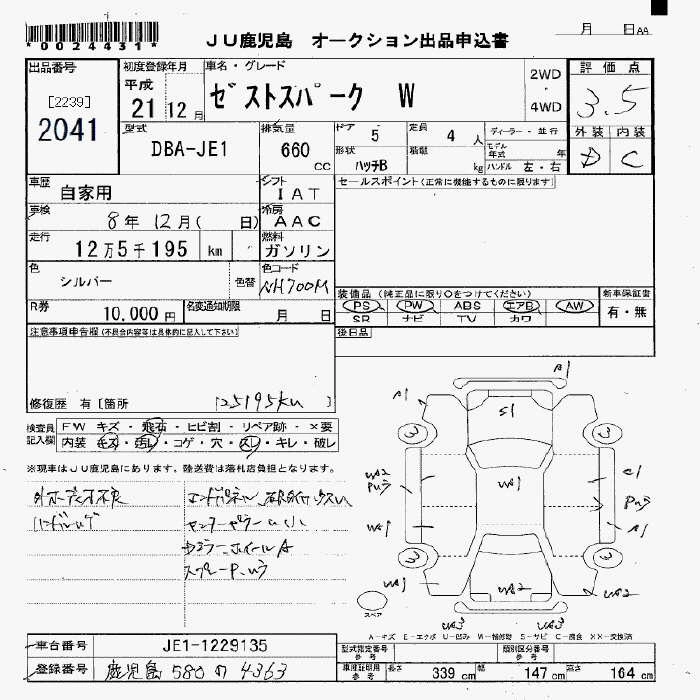 *0024431*
JU鹿児島 オークション出品申込書
月 日AA
出品番号
[2239]
2041
初度登録年月
平成
21 12 月
車名・グレード
ゼストスパーク W
2WD
・
4WD
評価点
3.5
外装 内装
D C
型式
DBA-JE1
排気量
660
cc
ドア 5
定員 4 人
ディーラー・並行
モデル年式 年
形状 ハッチB
積載 kg
ハンドル 左・右
車歴
自家用
シフト
IAT
セールスポイント(正常に機能するものに限ります)
車検
8年 12月( 日)
冷房
AAC
走行
12万5千195 km
燃料
ガソリン
色
シルバー
色替
色コード
NH700M
R券
10,000 円
名変通知期限
月 日
装備品(純正品に限り○をつけてください)
PS PW ABS エアB AW
SR ナビ TV カワ
新車保証書
有・無
注意事項申告欄(不具合内容等は具体的に記入して下さい)
後日品
修復歴 有[箇所 125195km ]
検査員記入欄
FW キズ・飛石・ヒビ割・リペア跡・×要
内装 キズ・汚レ・コゲ・穴・スレ・キレ・破レ
※現車はJU鹿児島にあります。陸送費は落札店負担となります。
A1
A1
S1
3
3
WA2
WA1
C1
WA1
A1
3
3
WA1
WA2
WA2
WA3
WA3
スペア
A-キズ E-エクボ U-凹み W-補修跡 S-サビ C-腐食 XX-交換済
車台番号
JE1-1229135
登録番号
鹿児島 580 の 4363
型式指定番号
参考
類別区分番号
車庫証明用
参考
長さ 339 cm
幅 147 cm
高さ 164 cm